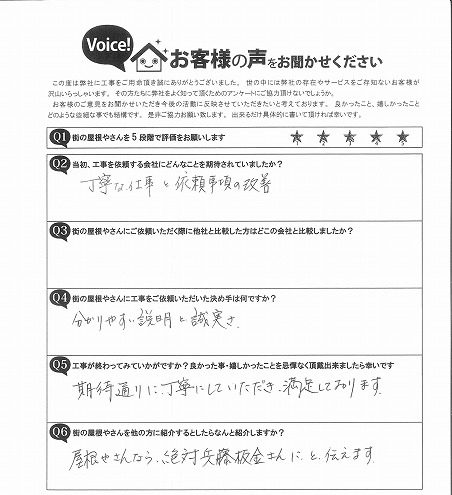 Voice!
お客様の声をお聞かせください
この度は弊社に工事をご用命頂き誠にありがとうございました。 世の中には弊社の存在やサービスをご存知ないお客様が
沢山いらっしゃいます。 その方たちに弊社をよく知って頂くためのアンケートにご協力頂けないでしょうか。
お客様のご意見をお聞かせいただき今後の活動に反映させていただきたいと考えております。 良かったこと、嬉しかったこと
どのような些細な事でも結構です。 是非ご協力お願い致します。 出来るだけ具体的に書いて頂ければ幸いです。
Q1 街の屋根やさんを5段階で評価をお願いします ★ ★ ★ ★ ★
Q2 当初、工事を依頼する会社にどんなことを期待されていましたか?
丁寧な仕事と依頼事項の改善
Q3 街の屋根やさんにご依頼いただく際に他社と比較した方はどこの会社と比較しましたか?
Q4 街の屋根やさんに工事をご依頼いただいた決め手は何ですか?
分かりやすい説明と誠実さ
Q5 工事が終わってみていかがですか?良かった事・嬉しかったことを忌憚なく頂戴出来ましたら幸いです
期待通りに、丁寧にしていただき、満足しております。
Q6 街の屋根やさんを他の方に紹介するとしたらなんと紹介しますか?
屋根やさんなら、絶対兵藤板金さんに、と、伝えます。